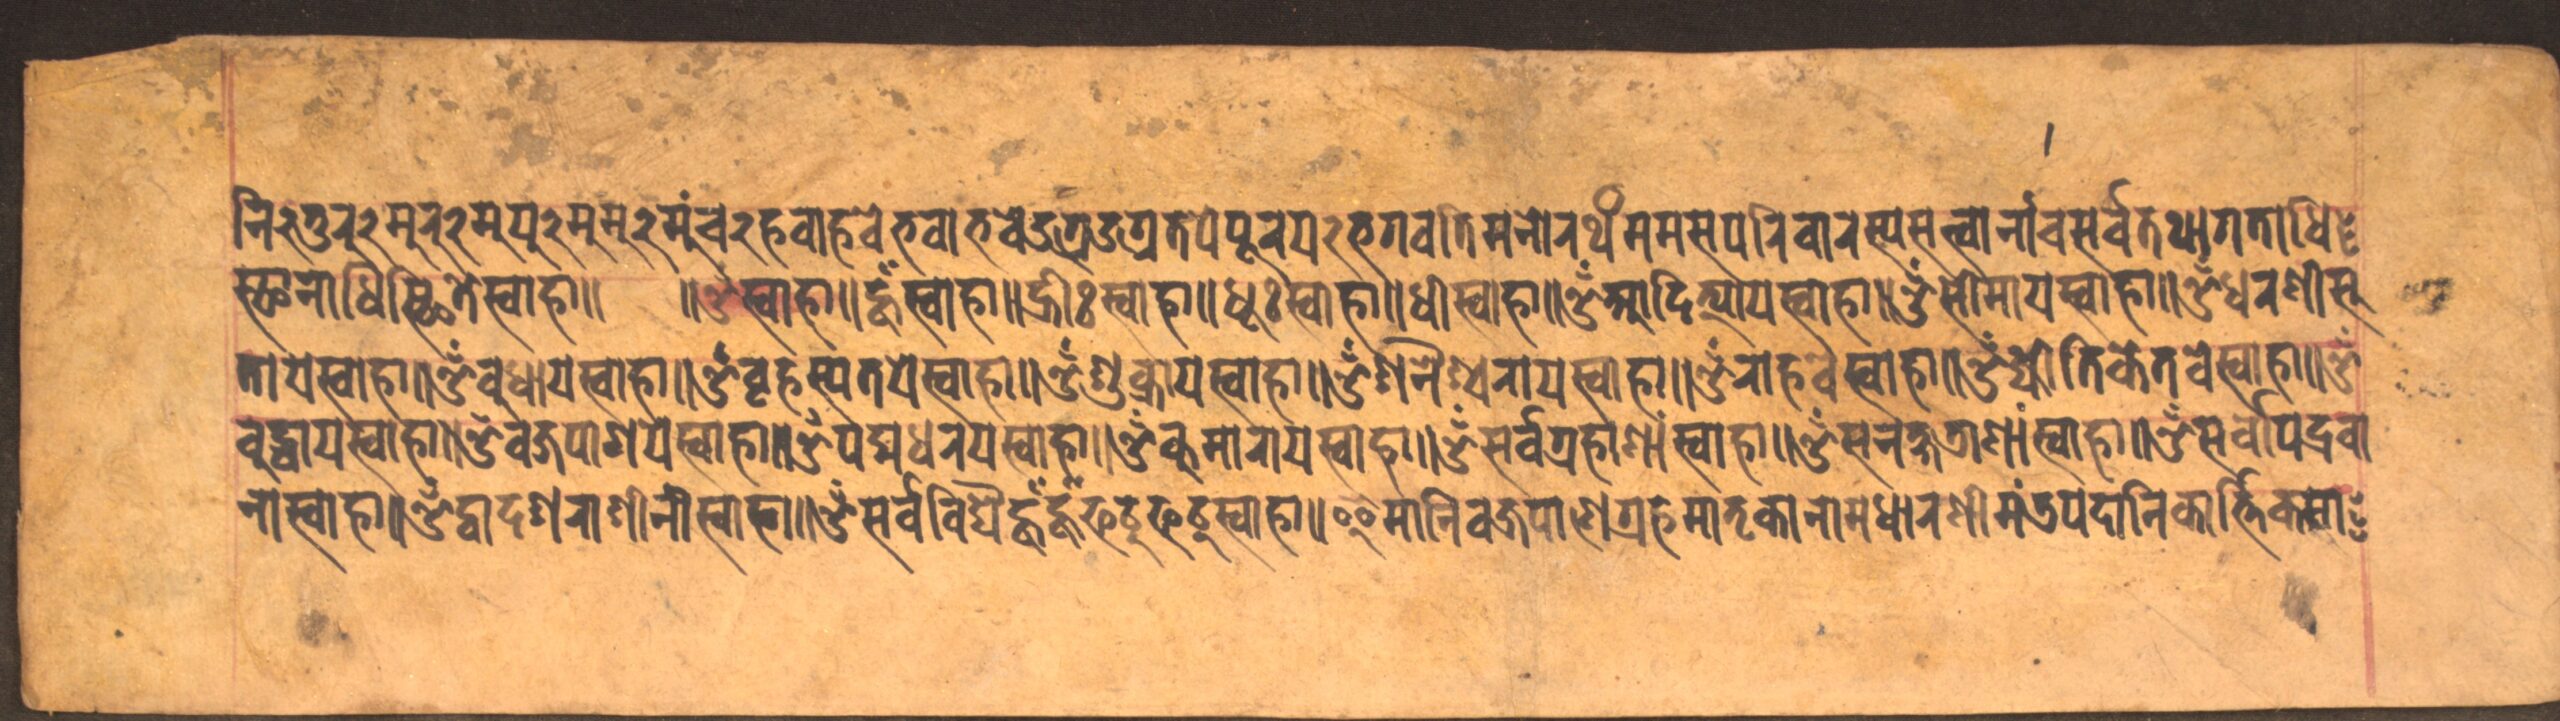 नि२तुरु२मुरु२मुयु२मुमु२मुंच२हवाहवे भवाभवे उग्र उग्रतपे पूरय२भगवति मनोरथं मम सपरिवारस्य सत्त्वानां च सर्वतथागताधि
स्छानाधिस्छिते स्वाहा॥ ॥ ॐ स्वाहा॥ हूँ स्वाहा॥ ह्रीः स्वाहा॥ धूः स्वाहा॥ धी स्वाहा॥ ॐ आदित्याय स्वाहा॥ ॐ सोमाय स्वाहा॥ ॐ धरणीसु
ताय स्वाहा॥ ॐ वुधाय स्वाहा॥ ॐ वृहस्पतये स्वाहा॥ ॐ शुक्राय स्वाहा॥ ॐ शनैश्चराय स्वाहा॥ ॐ राहवे स्वाहा॥ ॐ ज्योतिकेतवे स्वाहा॥ ॐ
वुद्धाय स्वाहा॥ ॐ वज्रपाणये स्वाहा॥ ॐ पद्मधरय स्वाहा॥ ॐ कुमाराय स्वाहा॥ ॐ सर्वग्रहाणां स्वाहा॥ ॐ सनक्षत्राणां स्वाहा॥ ॐ सर्वोपद्रवा
नां स्वाहा॥ ॐ द्वादशराशीनी स्वाहा॥ ॐ सर्वविद्यै हूँ हूँ फट् फट् स्वाहा॥ इमानि वज्रपाणे ग्रहमातृकानामधारणी मंत्रपदानि कार्त्तिकमा